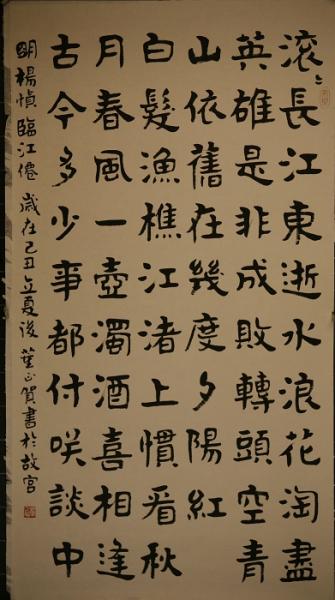 滾〻長江東逝水浪花淘盡
英雄是非成敗轉頭空青
山依舊在幾度夕陽紅
白髮漁樵江渚上慣看秋
月春風一壺濁酒喜相逢
古今多少事都付咲談中
明楊慎臨江僊 歲在己丑立夏後 葉賀書於故宮